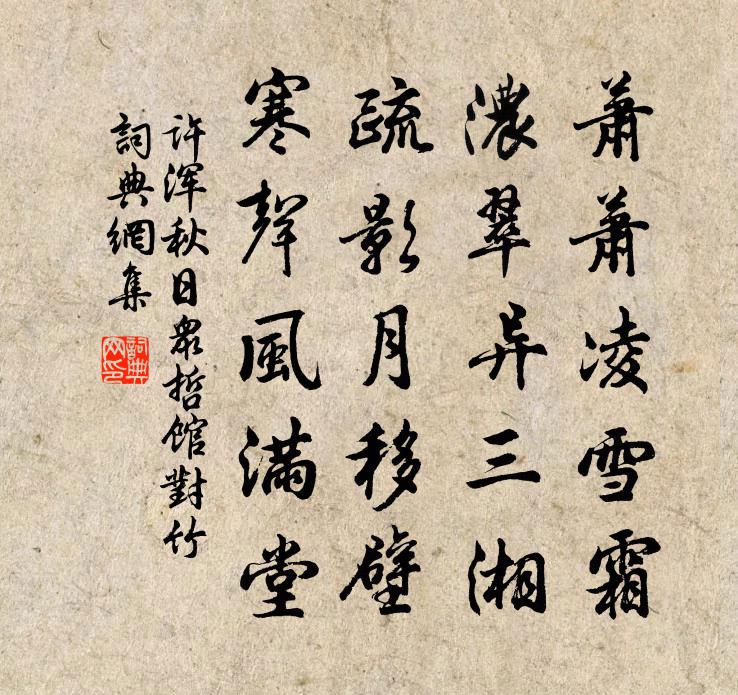 蕭蕭凌雪霜
濃翠异三湘
疏影月移壁
寒聲風滿堂
許渾秋日衆哲館對竹
詞典網集
詞典网印